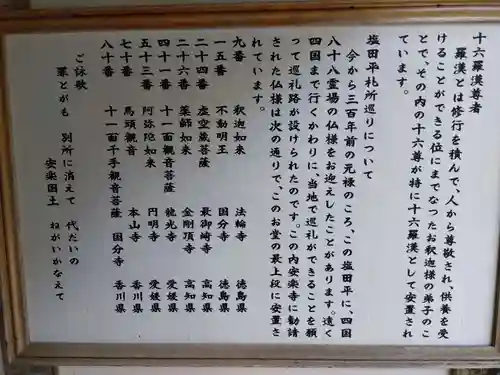 十六羅漢尊者
羅漢とは修行を積んで、人から尊敬され、供養を受
けることができる位にまでなったお釈迦様の弟子のこ
とで、その内の十六尊が特に十六羅漢として安置され
ています。
塩田平札所巡りについて
今から三百年前の元禄のころ、この塩田平に、四国
八十八霊場の仏様をお迎えしたことがあります。遠く
四国まで行くかわりに、当地で巡礼ができることを願
って巡礼路が設けられたのです。この内安楽寺に勧請
された仏様は次の通りで、このお堂の最上段に安置さ
れています。
九番 釈迦如来 法輪寺 徳島県
一五番 不動明王 国分寺 徳島県
二十四番 虚空蔵菩薩 最御崎寺 高知県
二十六番 薬師如来 金剛頂寺 高知県
四十一番 十一面観音菩薩 龍光寺 愛媛県
五十三番 阿弥陀如来 円明寺 愛媛県
七十番 馬頭観音 本山寺 香川県
八十番 十一面千手観音菩薩 国分寺 香川県
ご詠歌
罪とがも 別所に消えて 代だいの
安楽国土 ねがいかなえて